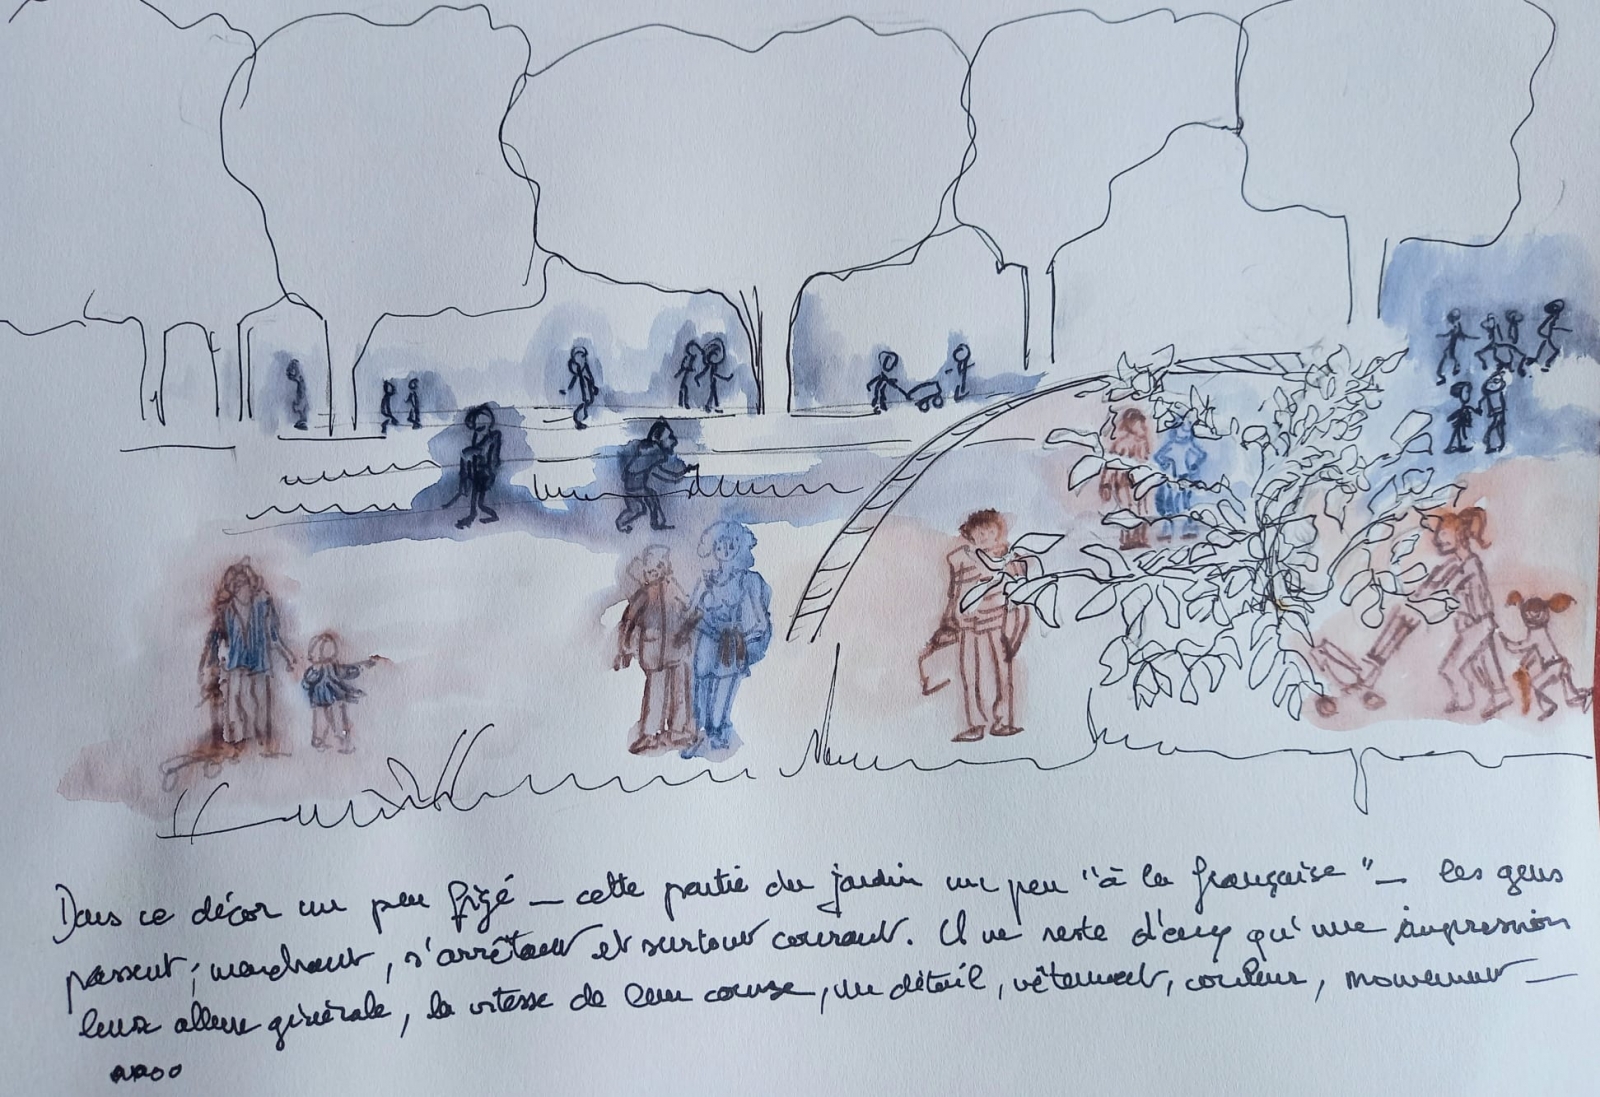 Dans ce décor un peu figé _ cette partie du jardin un peu "à la française" _ les gens
passent, marchant, s'arrêtant et surtout courant. Il ne reste d'eux qu'une impression
leur allure générale, la vitesse de leur course, un détail, vêtement, couleur, mouvement _